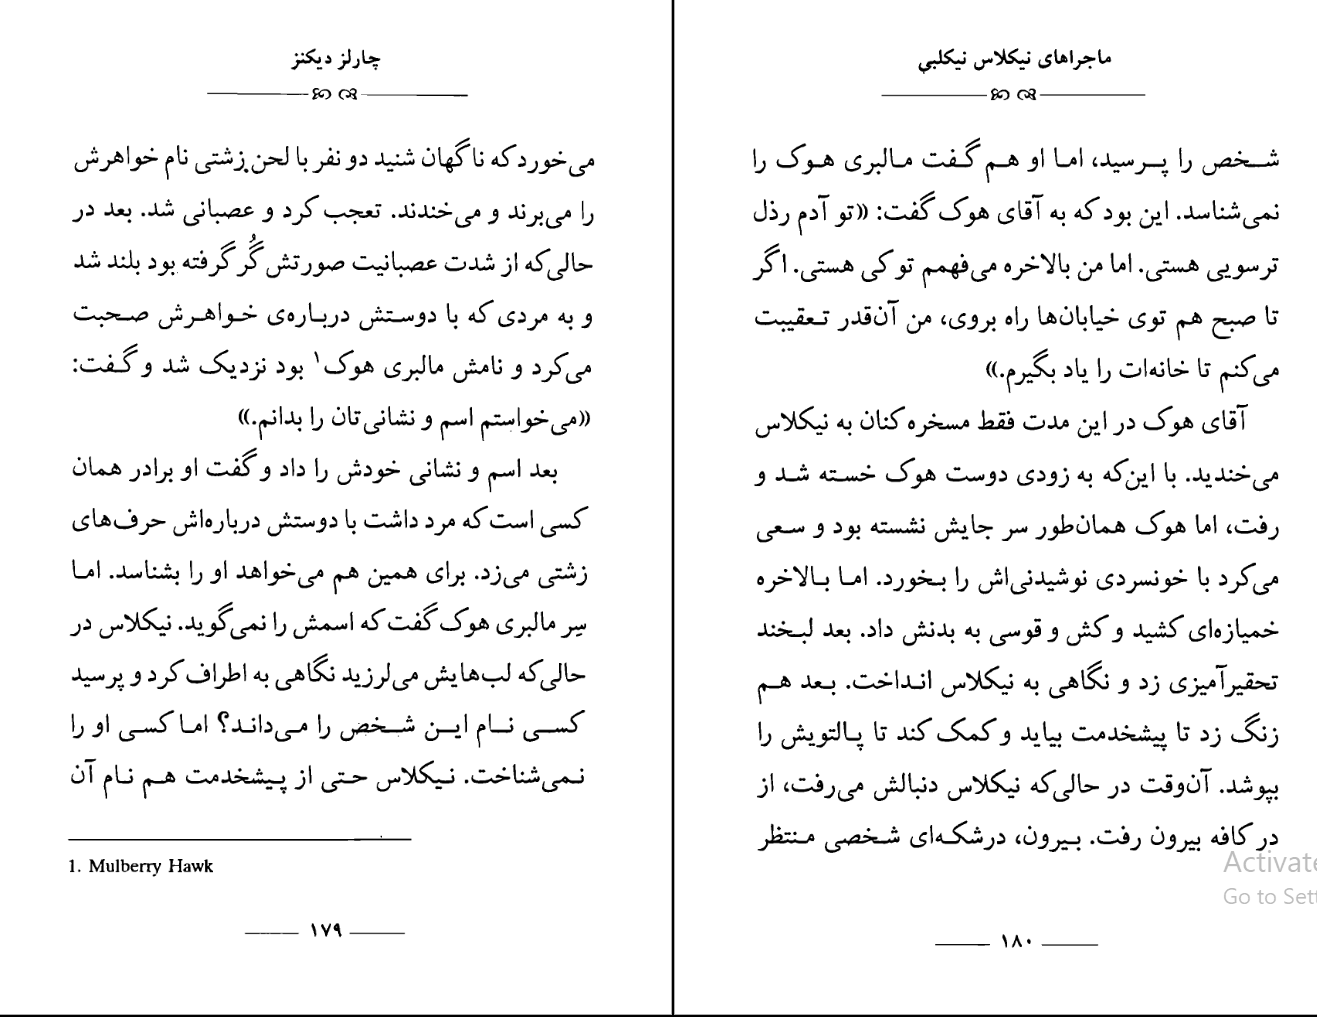 چارلز دیکنز
می‌خورد که ناگهان شنید دو نفر با لحن زشتی نام خواهرش
را می‌برند و می‌خندند. تعجب کرد و عصبانی شد. بعد در
حالی‌که از شدت عصبانیت صورتش گُر گرفته بود بلند شد
و به مردی که با دوستش درباره‌ی خواهرش صحبت
می‌کرد و نامش مالبری هوک۱ بود نزدیک شد و گفت:
«می‌خواستم اسم و نشانی‌تان را بدانم.»
بعد اسم و نشانی خودش را داد و گفت او برادر همان
کسی است که مرد داشت با دوستش درباره‌اش حرف‌های
زشتی می‌زد. برای همین هم می‌خواهد او را بشناسد. اما
سِر مالبری هوک گفت که اسمش را نمی‌گوید. نیکلاس در
حالی‌که لب‌هایش می‌لرزید نگاهی به اطراف کرد و پرسید
کسی نام این شخص را می‌داند؟ اما کسی او را
نمی‌شناخت. نیکلاس حتی از پیشخدمت هم نام آن
1. Mulberry Hawk
۱۷۹
ماجراهای نیکلاس نیکلبی
شخص را پرسید، اما او هم گفت مالبری هوک را
نمی‌شناسد. این بود که به آقای هوک گفت: «تو آدم رذل
ترسویی هستی. اما من بالاخره می‌فهمم تو کی هستی. اگر
تا صبح هم توی خیابان‌ها راه بروی، من آن‌قدر تعقیبت
می‌کنم تا خانه‌ات را یاد بگیرم.»
آقای هوک در این مدت فقط مسخره کنان به نیکلاس
می‌خندید. با این‌که به زودی دوست هوک خسته شد و
رفت، اما هوک همان‌طور سر جایش نشسته بود و سعی
می‌کرد با خونسردی نوشیدنی‌اش را بخورد. اما بالاخره
خمیازه‌ای کشید و کش و قوسی به بدنش داد. بعد لبخند
تحقیرآمیزی زد و نگاهی به نیکلاس انداخت. بعد هم
زنگ زد تا پیشخدمت بیاید و کمک کند تا پالتویش را
بپوشد. آن‌وقت در حالی‌که نیکلاس دنبالش می‌رفت، از
در کافه بیرون رفت. بیرون، درشکه‌ای شخصی منتظر
۱۸۰
Activate
Go to Sett